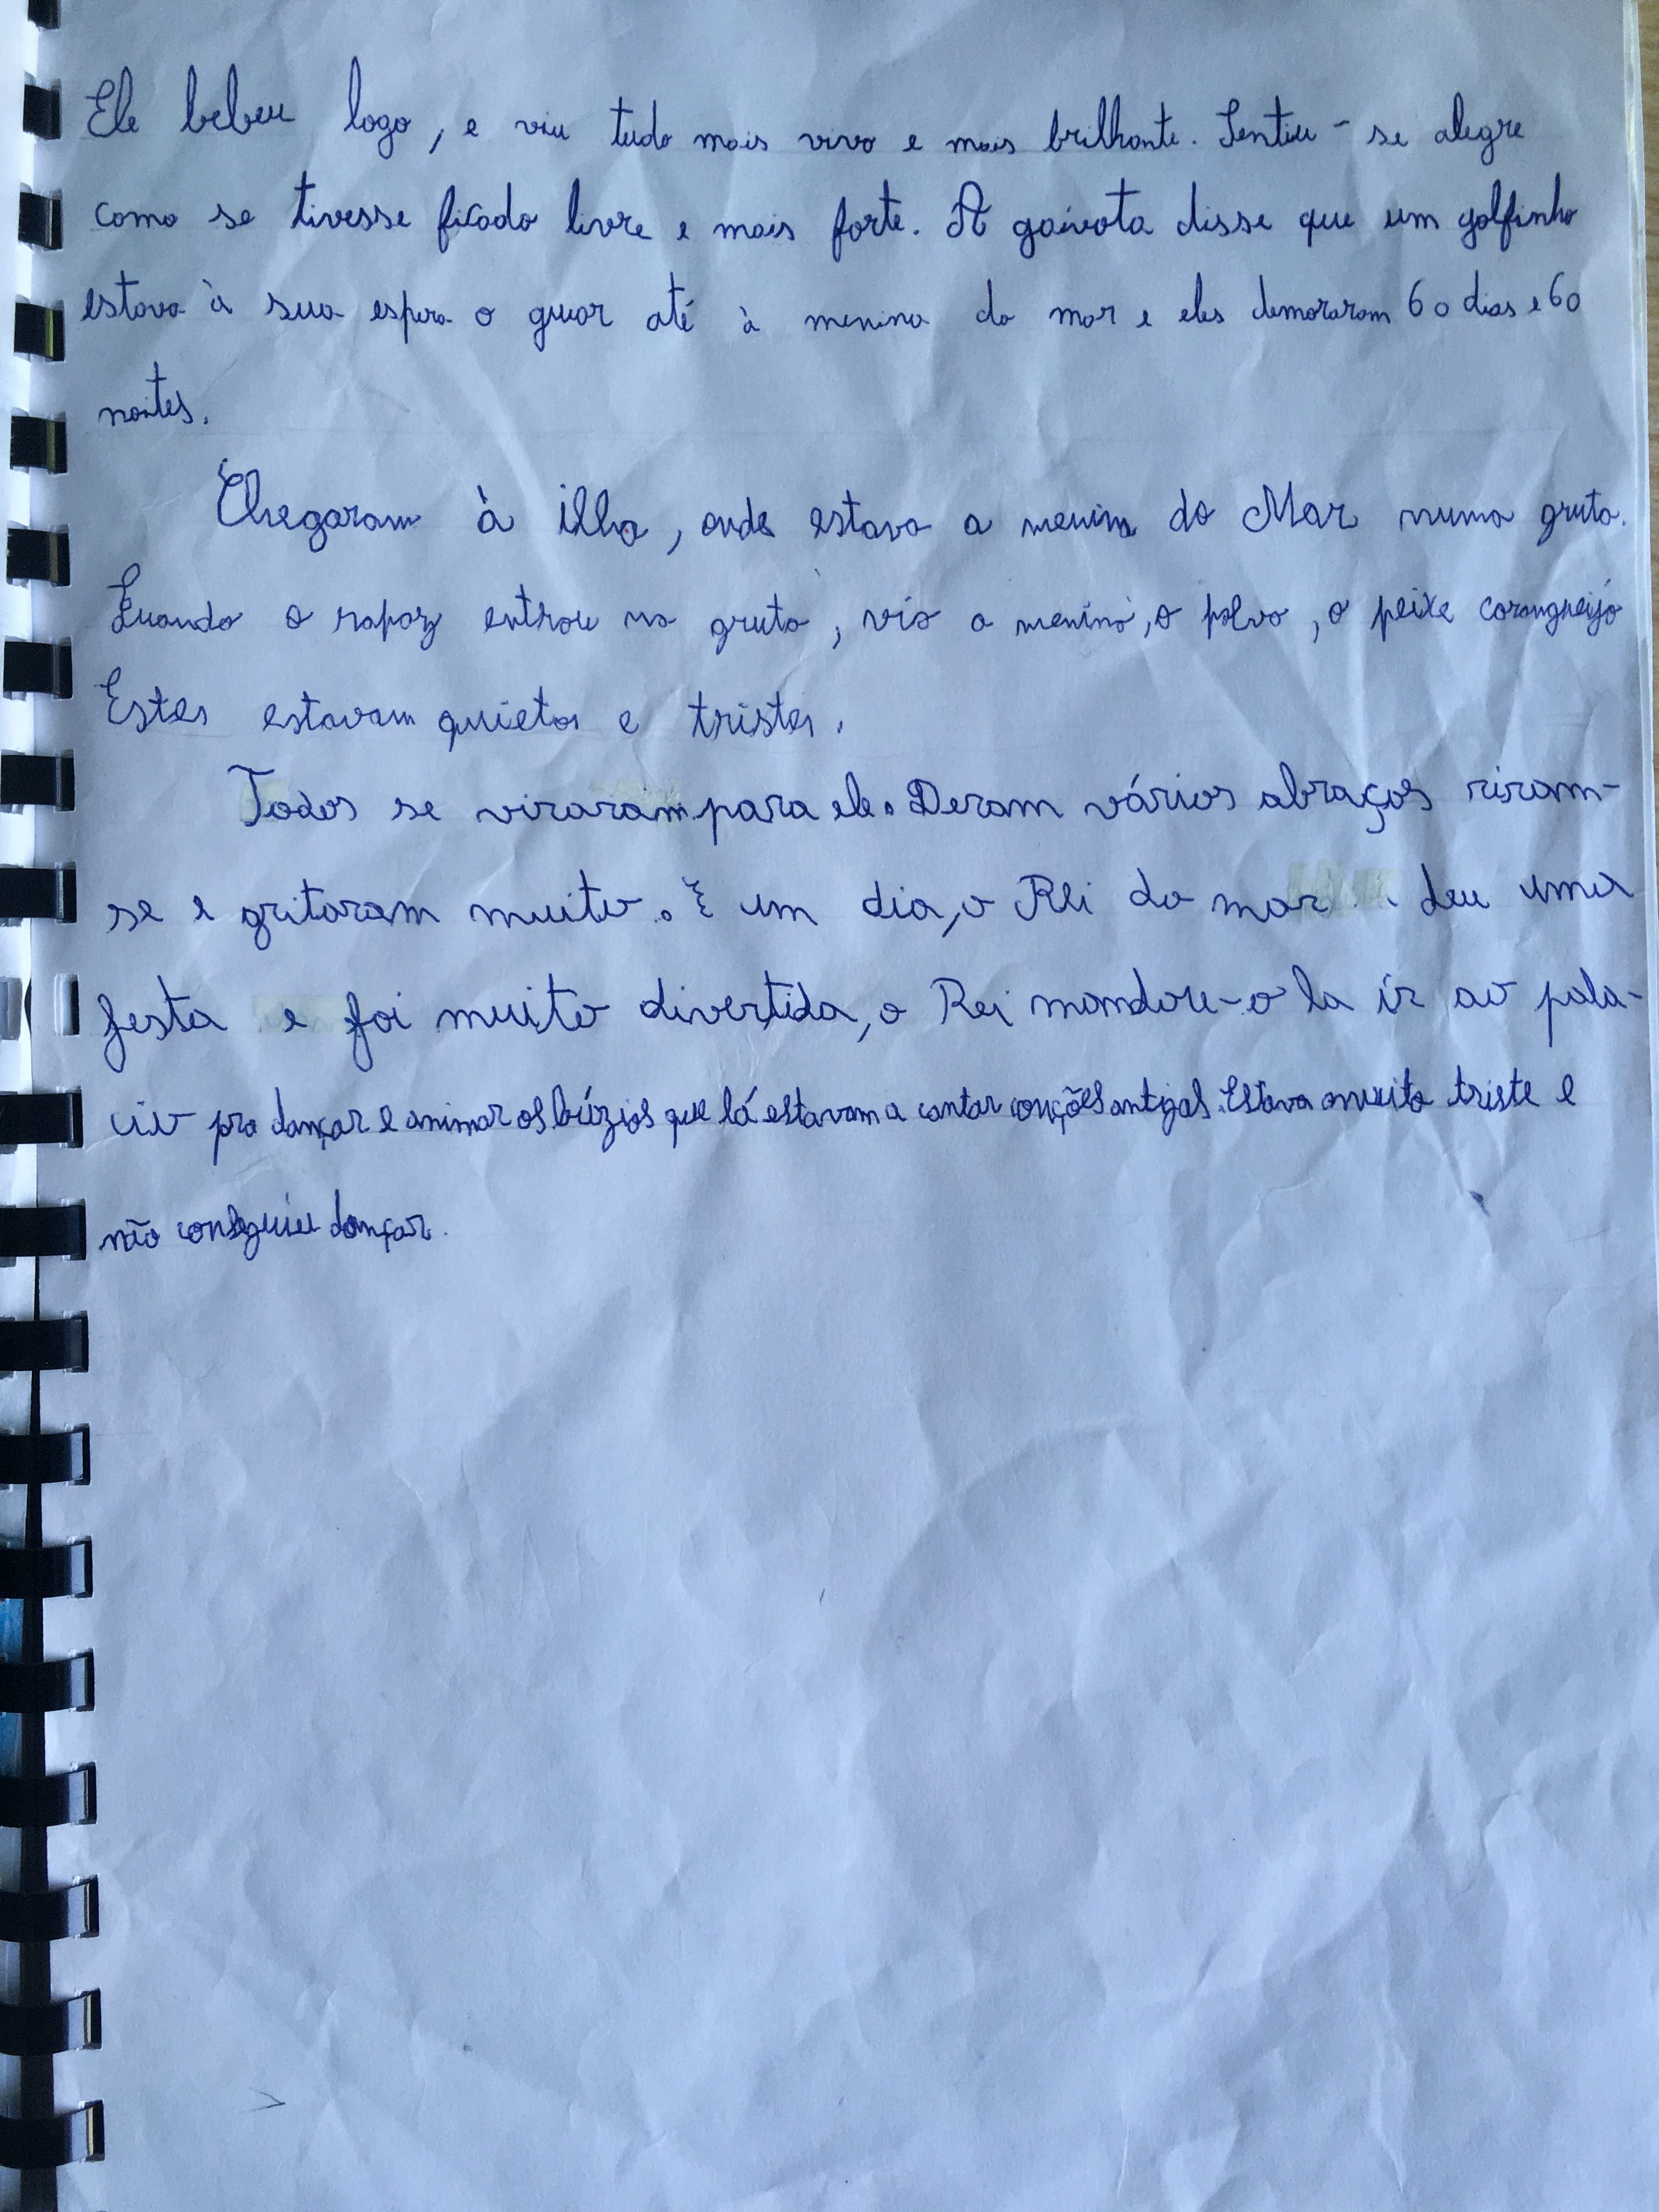 Ele bebeu logo, e viu tudo mais vivo e mais brilhante. Sentiu-se alegre
como se tivesse ficado livre e mais forte. A gaivota disse que um golfinho
estava à sua espera o guiar até à menina do mar e eles demoraram 60 dias e 60
noites.
Chegaram à ilha, onde estava a menina do Mar numa gruta.
Quando o rapaz entrou na gruta, viu a menina, o polvo, o peixe carangneijo
Estes estavam quietos e tristes.
Todos se viraram para ele. Deram vários abraços riram-
se e gritaram muito. E um dia, o Rei do mar deu uma
festa e foi muito divertida, o Rei mandou-o la ir ao palá-
cio pra dançar e animar os búzios que lá estavam a cantar conções antigas. Estava muito triste e
não conseguiu dançar.